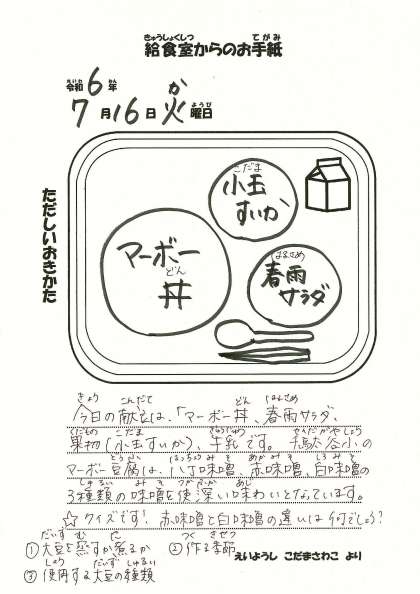 きゅうしょくしつ てがみ
給食室からのお手紙
れいわ ねん
令和6年
か
7月16日火曜日
ようび
ただしいおきかた
こだま
小玉
すいか
マーボー
どん
丼
はるさめ
春雨
サラダ
きょう こんだて どん はるさめ
今日の献立は、「マーボー丼、春雨サラダ、
くだもの こだま ぎゅうにゅう せんだがやしょう
果物(小玉すいか)、牛乳です。千駄谷小の
とうふ はっちょうみそ あかみそ しろみそ
マーボー豆腐は、八丁味噌、赤味噌、白味噌の
しゅるい みそ つか ふか あじ
3種類の味噌を使い深い味わいとなっています。
☆クイズです!赤味噌と白味噌の違いは何でしょう?
だいず む に つく きせつ
①大豆を蒸すか煮るか ②作る季節
しよう だいず しゅるい
③使用する大豆の種類
えいようし こだまさわこ より